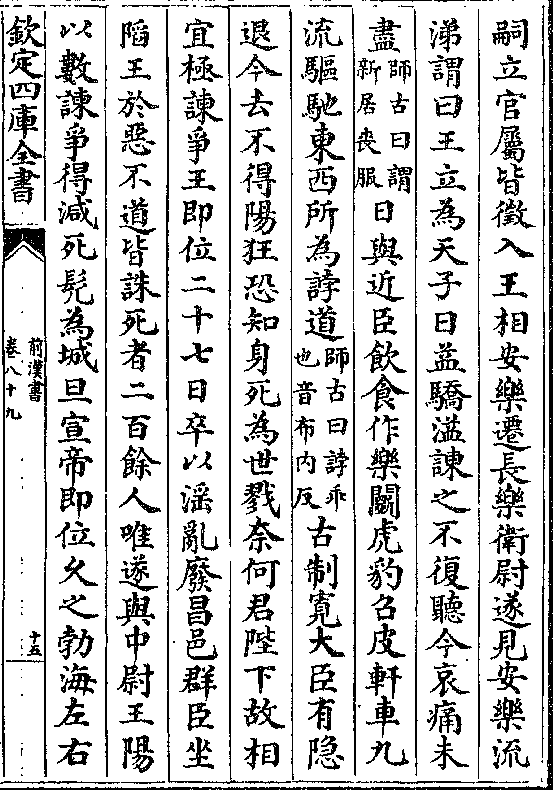 嗣立官屬皆徵入王相安樂遷長樂衛尉遂見安樂流
涕謂曰王立為天子日益驕溢諫之不復聽今哀痛未
盡師古曰謂新居喪服日與近臣飲食作樂鬭虎豹召皮軒車九
流驅馳東西所為誖道師古曰誖乖也音布内反古制寬大臣有隠
退今去不得陽狂恐知身死為世戮奈何君陛下故相
宜極諫爭王即位二十七日卒以滛亂廢昌邑群臣坐
陷王於惡不道皆誅死者二百餘人唯遂與中尉王陽
以數諫爭得減死髠為城旦宣帝即位久之勃海左右
欽定四庫全書
前漢書
卷八十九
十五